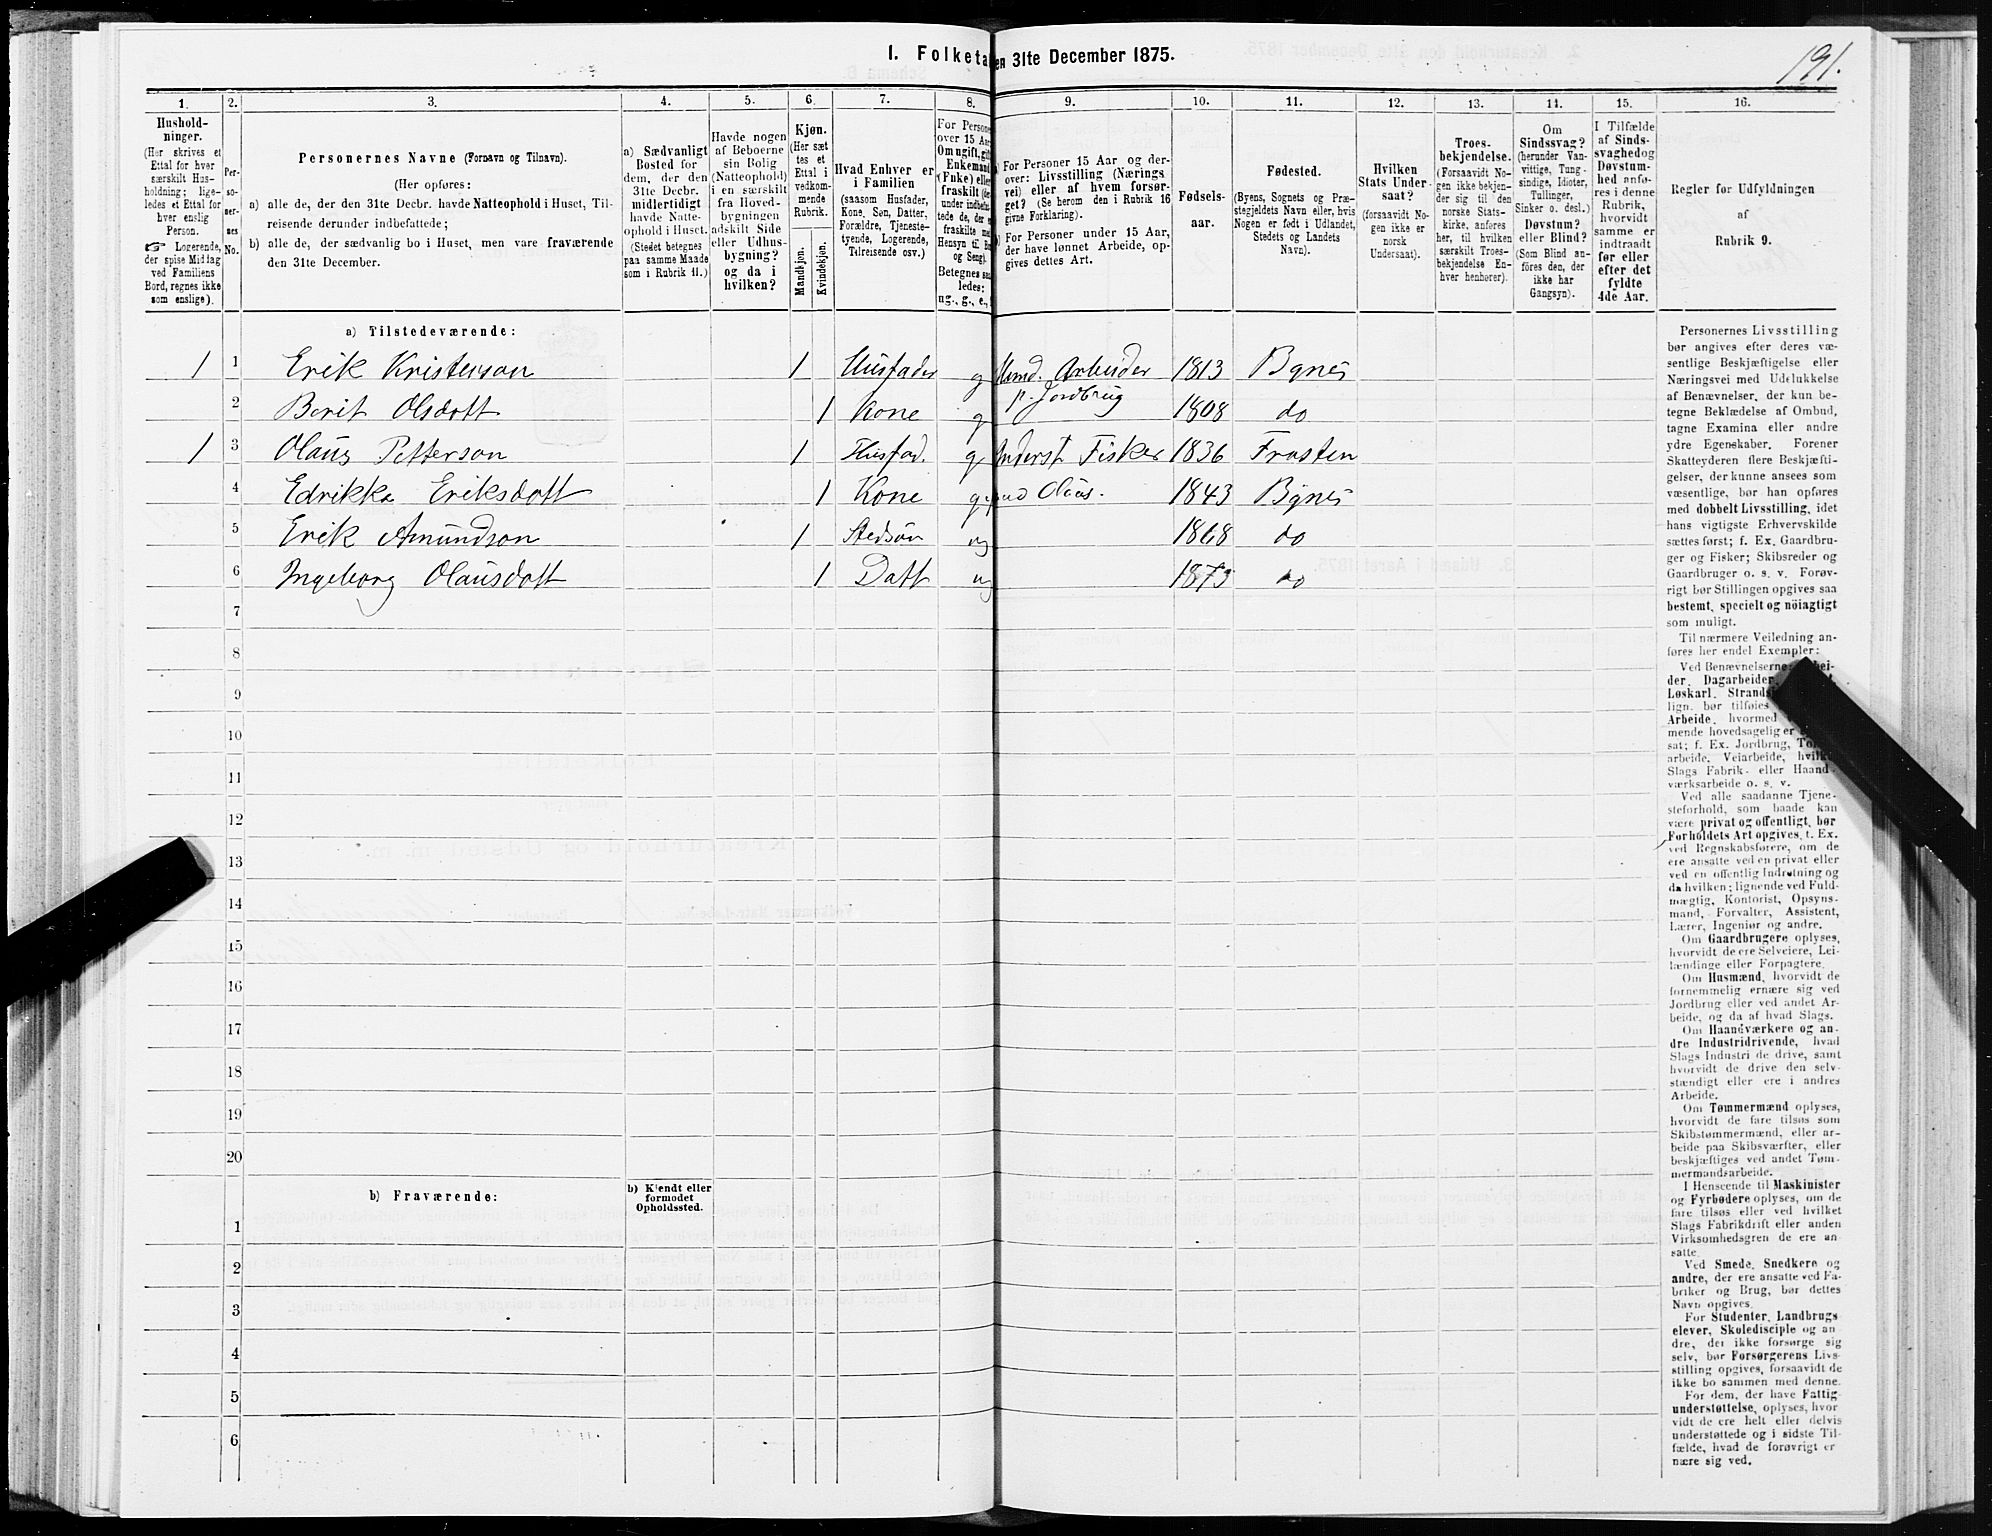 191.
I. Folketa en 31te December 1875.
1. 2. 3. 4. 5. 6. 7. 8. 9. 10. 11. 12. 13. 14. 15. 16.
Hushold-
ninger.
(Her skrives et
Ettal for hver
særskilt Hus-
holdning; lige-
ledes et Ettal for
hver enslig
Person.
☞ Logerende,
der spise Middag
ved Familiens
Bord, regnes ikke
som enslige).
Per-
so-
ner-
nes
No.
Personernes Navne (Fornavn og Tilnavn).
(Her opføres:
a) alle de, der den 31te Decbr. havde Natteophold i Huset, Til-
reisende derunder indbefattede;
b) alle de, der sædvanlig bo i Huset, men vare fraværende
den 31te December.
a) Sædvanligt
Bosted for
dem, der den
31te Decbr.
midlertidigt
havde Natte-
ophold i Huset.
(Stedet betegnes
paa samme Maade
som i Rubrik 11.)
Havde nogen
af Beboerne
sin Bolig
(Natteophold)
i en særskilt
fra Hoved-
bygningen
adskilt Side
eller Udhus-
bygning?
og da i
hvilken?
Kjøn.
(Her sæt
tes et
Ettal i
vedkom-
mende
Rubrik.
Mandkjøn.
Kvindekjøn.
Hvad Enhver er
i Familien
(saasom Husfader,
Kone, Søn, Datter,
Forældre, Tjeneste-
tyende, Logerende,
Tilreisende osv.)
For Persone
over 15 Aa
Om ugift, gif
Enkemand
(Enke) elle
fraskilt
under indbefa
tede de, der
fraskilte me
Hensyn til B
og Seng).
Betegnes saa
ledes:
ug., g., e.,
For Personer 15 Aar og der-
over: Livsstilling (Nærings
vei) eller af hvem forsør-
get? (Se herom den i Rubrik 16
givne Forklaring).
For Personer under 15 Aar,
der have lønnet Arbeide, op-
gives dettes Art.
Fødsels-
aar.
Fødested.
(Byens, Sognets og Præ-
stegjeldets Navn eller, hvis
Nogen er født i Udlandet,
Stedets og Landets
Navn).
Hvilken
Stats Under-
saat?
(forsaavidt No-
gen ikke er
norsk
Undersaat).
Troes-
bekjendelse.
(Forsaavidt No-
gen ikke bekjen-
der sig til den
norske Stats-
kirke, anføres
her, til hvilken
særskilt Troes-
bekjendelse En-
hver henhører).
Om
Sindssvag?
(herunder Van-
vittige, Tung-
sindige, Idioter,
Tullinger,
Sinker o. desl.)
Døvstum?
eller Blind?
(Som Blind an-
føres den, der
ikke har
Gangsyn).
I Tilfælde
af Sinds-
svaghed og
Døvstum-
hed anfø-
res i denne
Rubrik,
hvorvidt
samme er
indtraadt
før eller
efter det
fyldte
4de Aar.
Regler for Udfyldningen
af
Rubrik 9.
a) Tilstedeværende:
1 1 Erik Kristenson 1 Husfader g Arbeider 1813 Bynes
p. Jordbrug
2 Berit Olsdatt 1 Kone g 1808 do
1 3 Olaus Petterson 1 Husfad. g Fisker 1836 Frosten
4 Edrikke Eriksdatt 1 Kone g Olaus. 1843 Bynes
5 Erik Amundson 1 Stedsøn ug 1868 do
6 Ingeborg Olausdatt 1 Datt ug 1873 do
7
8
9
10
11
12
13
14
15
16
17
18
19
20
b) Fraværende:
b) Kjendt eller
formodet
Opholdssted.
1
2
3
4
5
6
Personernes Livsstilling
bør angives efter deres væ-
sentlige Beskjæftigelse eller
Næringsvei med Udelukkelse
af Benævnelser, der kun be-
tegne Beklædelse af Ombud,
tagne Examina eller andre
ydre Egenskaber. Forener
Skatteyderen flere Beskjæfti-
gelser, der kunne ansees som
væsentlige, bør han opføres
med dobbelt Livsstilling, idet
hans vigtigste Erhvervskilde
sættes først; f. Ex. Gaardbru-
ger og Fisker; Skibsreder og
Gaardbruger o. s. v. Forøv-
rigt bør Stillingen opgives saa
bestemt, specielt og nöiagtigt
som muligt.
Til nærmere Veiledning an-
føres her endel Exempler:
Ved Benævnelserne
der, Dagarbeider,
Løskarl, Strands
lign. bør tilføies
Arbeide, hvormed
mende hovedsagelig er
sat; f. Ex. Jordbrug,
arbeide, Veiarbeide,
Slags Fabrik- eller Haand-
værksarbeide o. s. v.
Ved alle saadanne Tjene-
steforhold, som baade kan
være privat og offentligt, bør
Forholdets Art opgives, t. Ex.
ved Regnskabsførere, om de
ere ansatte ved en privat eller
ved en offentlig Indretning og
da hvilken; lignende ved Fuld-
mægtig, Kontorist, Opsyns-
mand, Forvalter, Assistent,
Lærer, Ingeniør og andre.
Om Gaardbrugere oplyses,
hvorvidt de ere Selveiere, Lei-
lændinge eller Forpagtere.
Om Husmænd, hvorvidt de
fornemmelig ernære sig ved
Jordbrug eller ved andet Ar-
beide, og da af hvad Slags.
Om Haandværkere og an-
dre Industridrivende, hvad
Slags Industri de drive, samt
hvorvidt de drive den selv-
stændigt eller ere i andres
Arbeide.
Om Tømmermænd oplyses,
hvorvidt de fare tilsøs som
Skibstømmermænd, eller ar-
beide paa Skibsværfter, eller
beskjæftiges ved andet Tøm-
mermandsarbeide.
I Henseende til Maskinister
og Fyrbødere oplyses, om de
fare tilsøs eller ved hvilket
Slags Fabrikdrift eller anden
Virksomhedsgren de ere an-
satte.
Ved Smede, Snedkere og
andre, der ere ansatte ved Fa-
briker og Brug, bør dettes
Navn opgives.
For Studenter, Landbrugs
elever, Skoledisciple og an
dre, der ikke forsørge sig
selv, bør Forsørgerens Livs-
stilling opgives, forsaavidt de
ikke bo sammen med denne.
For dem, der have Fattig-
understøttelse, oplyses, hvor
vidt de ere helt eller delvis
understøttede og i sidste Til-
fælde, hvad de forøvrigt er
nære sig ved.